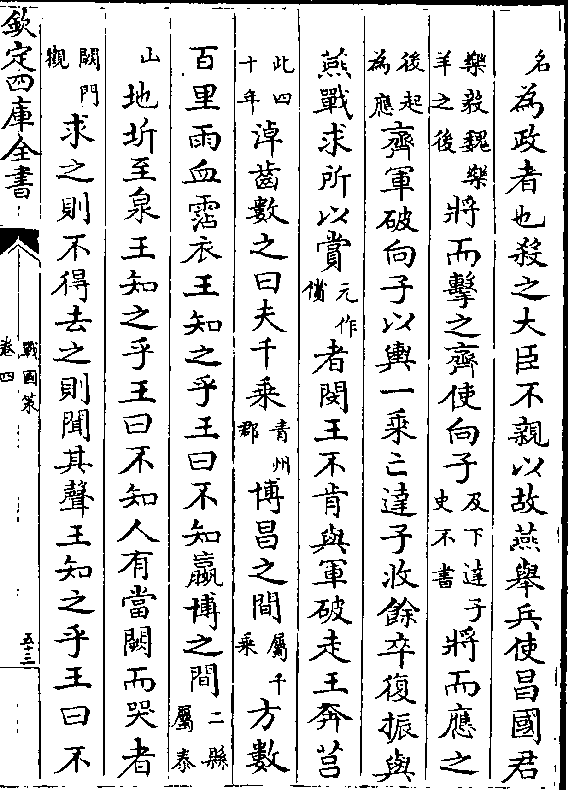 名為政者也殺之大臣不親以故燕舉兵使昌國君
樂毅魏樂羊之後將而擊之齊使向子及下達子史不書將而應之
後起為應齊軍破向子以輿一乘亡達子收餘卒復振與
燕戰求所以賞元作償者閔王不肯與軍破走王奔莒
此四十年淖齒數之曰夫千乘青州郡博昌之間屬千乘方數
百里雨血霑衣王知之乎王曰不知嬴博之間二縣屬泰
山地坼至泉王知之乎王曰不知人有當闕而哭者
闕門觀求之則不得去之則聞其聲王知之乎王曰不
欽定四庫全書
戰國策
卷四
五十三